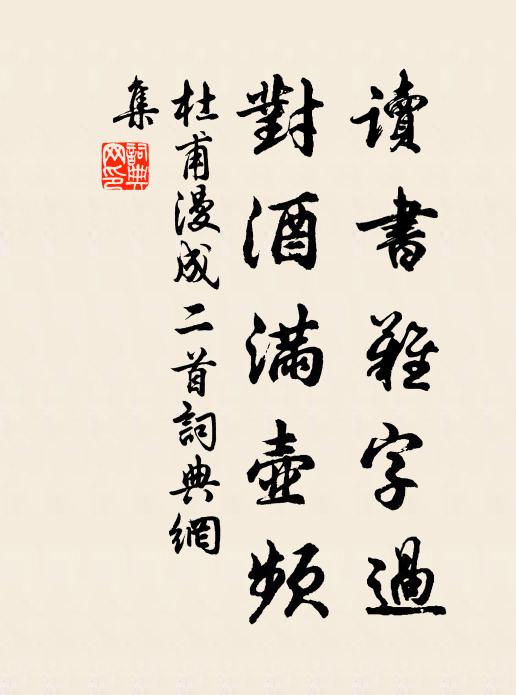 讀書難字過
對酒滿壺頻
杜甫漫成二首詞典網
集
詞典網印